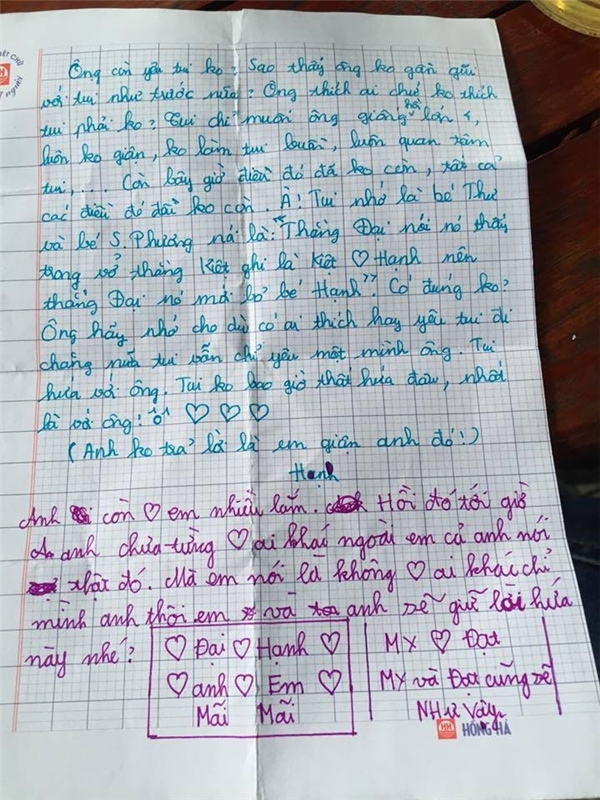 Ông còn yêu tui ko? Sao thấy ông ko gần gũi
với tui như trước nữa? Ông thích ai chứ ko thích
tui phải ko? Tui chỉ muốn ông giống hồi lớp 4,
luôn ko giận, ko làm tui buồn, luôn quan tâm
tui,... Còn bây giờ điều đó đã ko còn, tất cả
các điều đó đã ko còn. À! Tui nhớ là bé Thư
và bé S. Phương nó là: "Thằng Đại nói nó thấy
trong vở thằng Kiệt ghi là Kiệt ♡ Hạnh nên
thằng Đại nó mới bỏ bé Hạnh". Có đúng ko?
Ông hãy nhớ cho dù có ai thích hay yêu tui đi
chăng nữa tui vẫn chỉ yêu một mình ông. Tui
hứa với ông. Tui ko bao giờ thất hứa đâu, nhất
là với ông! ^o^ ♡ ♡ ♡
(Anh ko trả lời là em giận anh đó!)
Hạnh
Anh còn ♡ em nhiều lắm. Hồi đó tới giờ
anh chưa từng ♡ ai khác ngoài em cả anh nói
thật đó. Mà em nói là không ♡ ai khác chỉ
mình anh thôi em và anh sẽ giữ lời hứa
này nhé?
♡ Đại ♡ Hạnh ♡
♡ anh ♡ Em ♡
Mãi Mãi
MX ♡ Đạt
MX và Đạt cũng sẽ
NHư Vậy
HH HỒNG HÀ